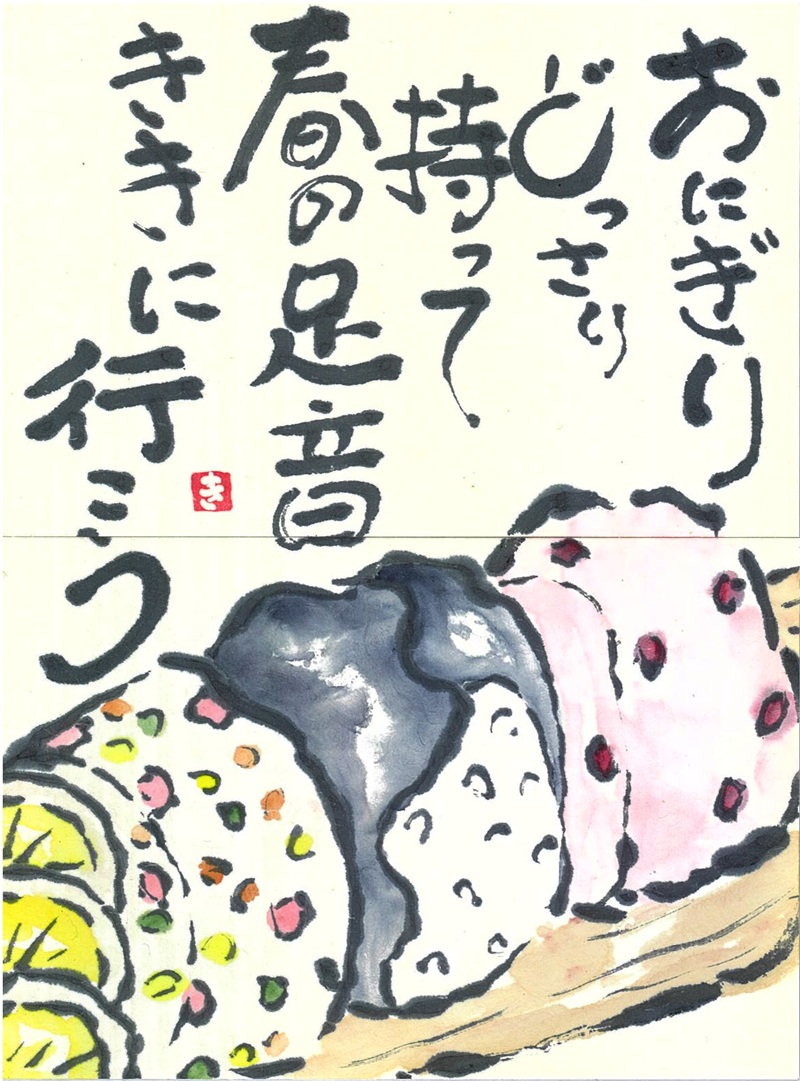 おにぎり
どっさり
持って
春の足音
ききに行こう
き